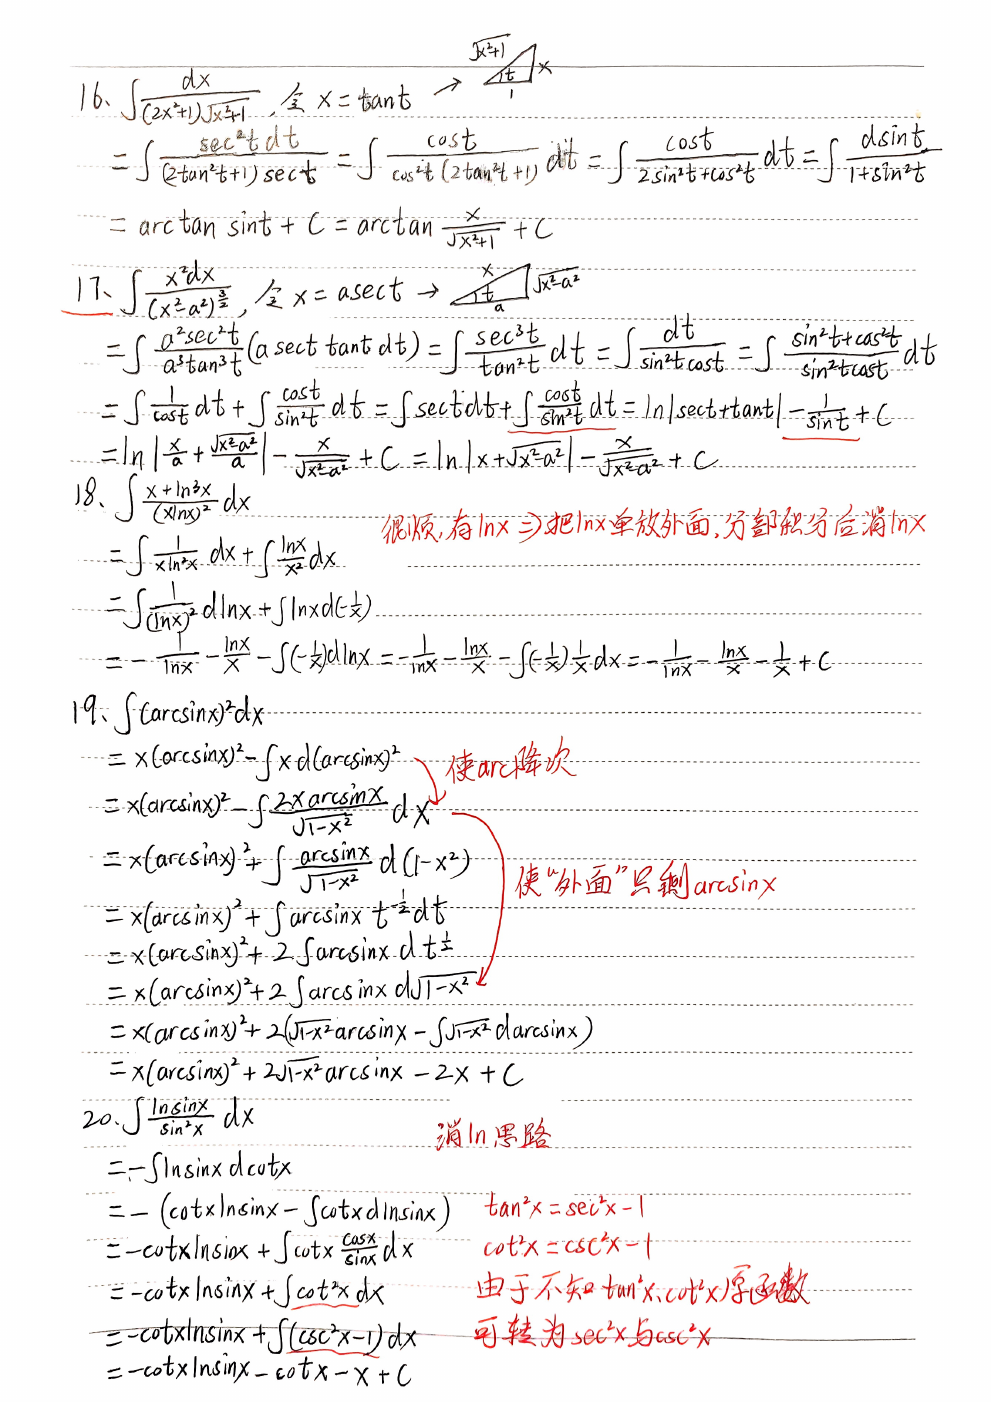 √x²+1 t x 1
16、∫ dx/((2x²+1)√x²+1), 令 x = tant →
= ∫ sec²t dt/((2tan²t+1) sect) = ∫ cost/(cos²t (2tan²t+1)) dt = ∫ cost/(2sin²t+cos²t) dt = ∫ dsint/(1+sin²t)
= arctan sint + C = arctan x/√x²+1 + C
17、∫ x²dx/(x²-a²)^(3/2), 令 x = asect → x t a √x²-a²
= ∫ a²sec²t/a³tan³t (a sect tant dt) = ∫ sec³t/tan²t dt = ∫ dt/(sin²t cost) = ∫ (sin²t+cos²t)/(sin²tcost) dt
= ∫ 1/cost dt + ∫ cost/sin²t dt = ∫ sectdt + ∫ cost/sin²t dt = ln|sect+tant| - 1/sint + C
= ln|x/a + √x²-a²/a| - x/√x²-a² + C = ln|x+√x²-a²| - x/√x²-a² + C
18、∫ (x+ln³x)/(xlnx)² dx
很烦,有lnx ⇒ 把lnx单放外面,分部积分后消lnx
= ∫ 1/(xln²x) dx + ∫ lnx/x² dx
= ∫ 1/(lnx)² dlnx + ∫lnxd(-1/x)
= - 1/lnx - lnx/x - ∫(-1/x)dlnx = - 1/lnx - lnx/x - ∫(-1/x) 1/x dx = - 1/lnx - lnx/x - 1/x + C
19、∫(arcsinx)²dx
= x(arcsinx)² - ∫x d(arcsinx)²
使arc降次
= x(arcsinx)² - ∫ 2x arcsinx/√1-x² dx
= x(arcsinx)² + ∫ arcsinx/√1-x² d(1-x²)
使"外面"只剩arcsinx
= x(arcsinx)² + ∫arcsinx t^(-1/2) dt
= x(arcsinx)² + 2∫arcsinx d t^(1/2)
= x(arcsinx)² + 2∫arcsinx d√1-x²
= x(arcsinx)² + 2(√1-x² arcsinx - ∫√1-x² darcsinx)
= x(arcsinx)² + 2√1-x² arcsinx - 2x + C
20、∫ lnsinx/sin²x dx
消ln思路
= -∫lnsinx dcotx
= - (cotxlnsinx - ∫cotxdlnsinx)
tan²x = sec²x - 1
= -cotxlnsinx + ∫cotx cosx/sinx dx
cot²x = csc²x - 1
= -cotxlnsinx + ∫cot²x dx
由于不知tan²x、cot²x原函数
= -cotxlnsinx + ∫(csc²x-1)dx
可转为sec²x与csc²x
= -cotxlnsinx - cotx - x + C